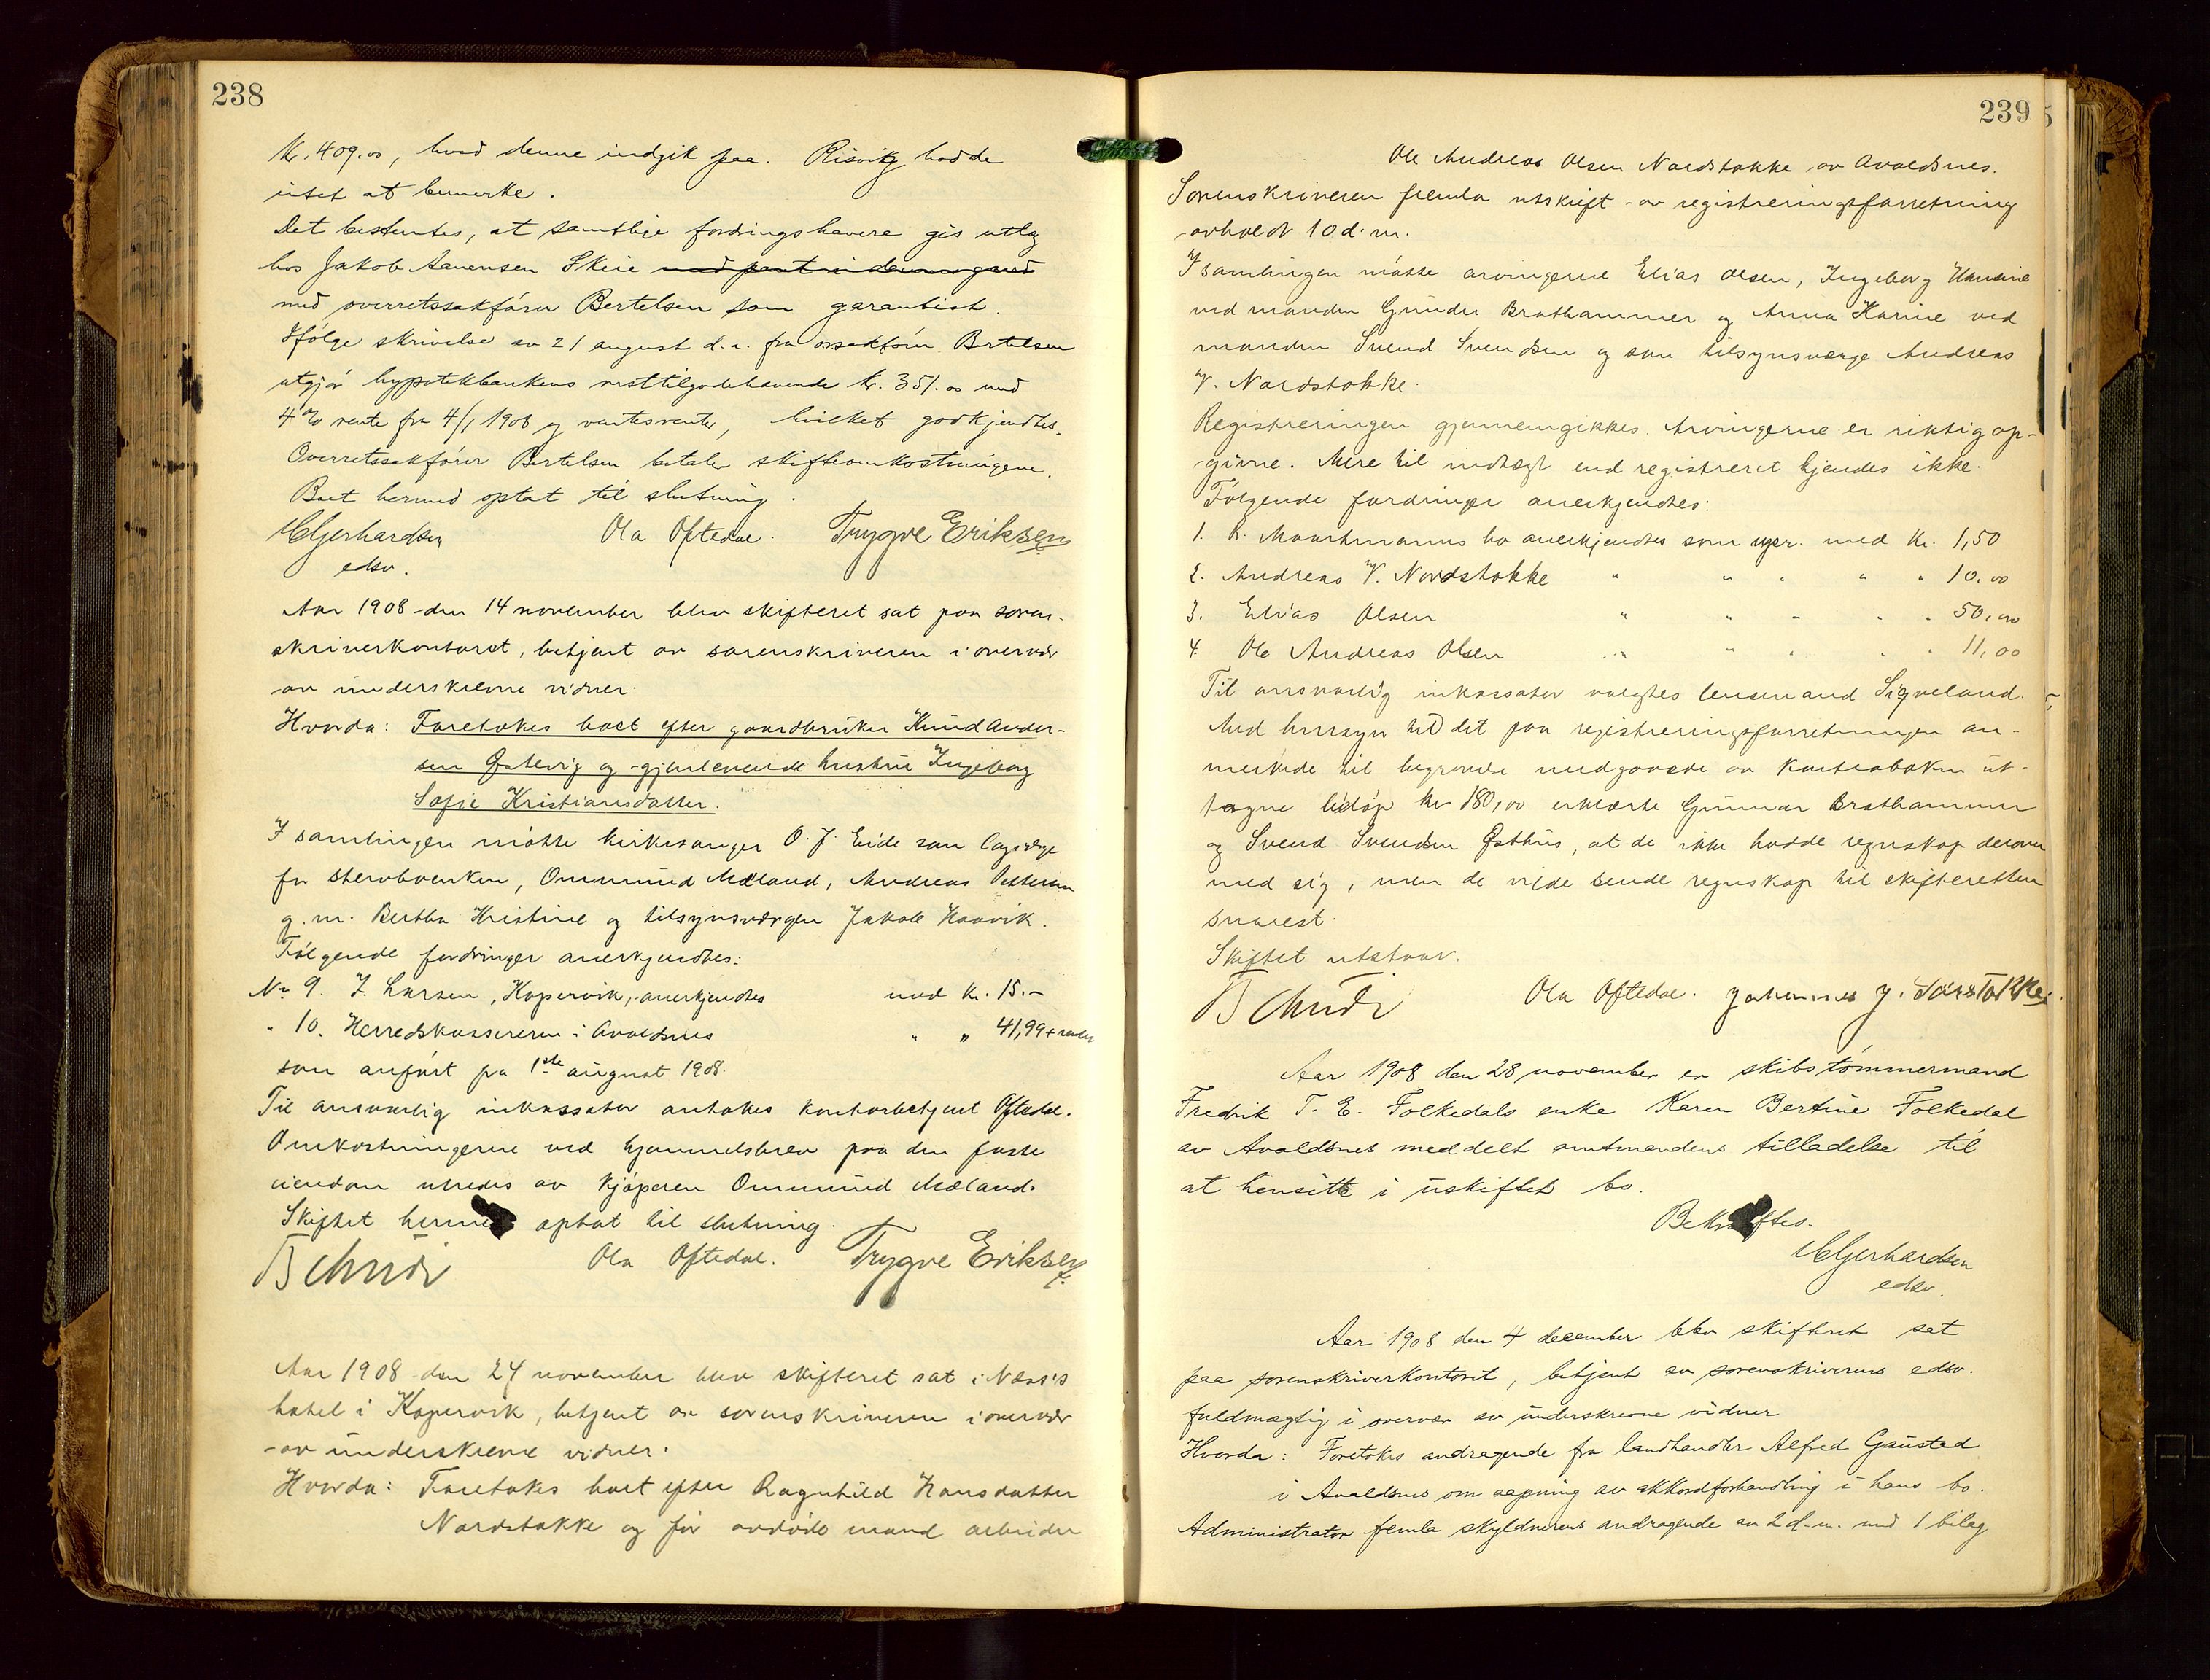 238
Kr. 409.00, hvad denne indgik paa. Risvig hadde
intet at bemerke.
Det bestemtes, at samtlige fordringshavere gis utlæg
hos Jakob Aanensen Skeie med pant i dennes gaard
med overretssakfører Bertelsen som garantist.
Ifølge skrivelse av 21 august d. a. fra orsakfører Bertelsen
utgjør hypotekbankens resttilgodehavende kr. 351.00 med
4% rente fra 4/1 1908 og rentesrenter, hvilket godkjendtes.
Overretssakfører Bertelsen betaler skifteomkostningene.
Boet hermed optat til slutning.
Gjerhardsen Ola Oftedal. Trygve Eriksen
edsv.
Aar 1908 den 14 november blev skifteret sat paa soren-
skriverkontoret, betjent av sorenskriveren i overvær
av underskrevne vidner.
Hvorda: Foretokes boet efter gaardbruker Knud Ander-
sen Østevig og gjenlevende hustru Ingeborg
Sofie Kristiansdatter.
I samlingen møtte kirkesanger O. J. Eide som lagverge
for stervboenken, Ommund Mæland, Andreas Pettersen
g. m. Bertha Kristine og tilsynsvergen Jakob Haavik.
Følgende fordringer anerkjendtes:
No 9. J. Larsen, Kopervik, anerkjendtes med Kr. 15.-
" 10. Herredskassereren i Avaldsnes " " 41,99 + renter
som anført pa 1ste august 1908.
Til ansvarlig inkassator antokes kontorbetjent Oftedal.
Omkostningerne ved hjemmelsbrev paa den faste
eiendom utredes av kjøperen Ommund Mæland.
Skiftet hermed optat til slutning.
Schiøtz Ola Oftedal. Trygve Eriksen
Aar 1908 den 24 november blev skifteret sat i Næss's
hotel i Kopervik, betjent av sorenskriveren i overvær
av underskrevne vidner.
Hvorda: Foretokes boet efter Ragnhild Hansdatter
Nordstokke og før avdøde mand arbeider
239
Ole Andreas Olsen Nordstokke av Avaldsnes.
Sorenskriveren fremla utskrift av registreringsforretning
avholdt 10 d. m.
I samlingen møtte arvingerne Elias Olsen, Ingeborg Hansine
ved manden Gunder Brathammer og Anna Karine ved
manden Svend Svendsen og som tilsynsverge Andreas
V. Nordstokke.
Registreringen gjennemgikkes. Arvingerne er riktig op-
givne. Mere til indtægt end registreret kjendes ikke.
Følgende fordringer anerkjendtes:
1. R. Maartmanns bo anerkjendtes som upr. med Kr. 1,50
2. Andreas V. Nordstokke " " " " " 10,00
3. Elias Olsen " " " " " 50,00
4. Ole Andreas Olsen " " " " " 11,00
Til ansvarlig inkassator valgtes lensmand Sigveland.
Med hensyn til det paa registreringsforretningen an-
merkede til begravelse medgaaede av kontrabøken ut-
tagne beløp kr 180,00 erklærte Gunnar Brathammer
og Svend Svendsen Østhus, at de ikke hadde regnskap derover
med sig, men de vilde sende regnskap til skifteretten
snarest.
Skiftet utstaar.
Schiøtz Ola Oftedal. Johannes J. Sørstokke.
Aar 1908 den 28 november er skibstømmermand
Fredrik T. E. Folkedals enke Karen Bertine Folkedal
av Avaldsnes meddelt amtmandens tilladelse til
at hensitte i uskiftet bo.
Bekræftes.
Gjerhardsen
edsv.
Aar 1908 den 4 december blev skifteret sat
paa sorenskriverkontoret, betjent av sorenskriverens edsv.
fuldmægtig i overvær av underskrevne vidner
Hvorda: Foretokes andragende fra landhandler Alfred Gausted
i Avaldsnes om aapning av akkordforhandling i hans bo.
Administrator fremla skyldnerens andragende av 2 d. m. med 1 bilag